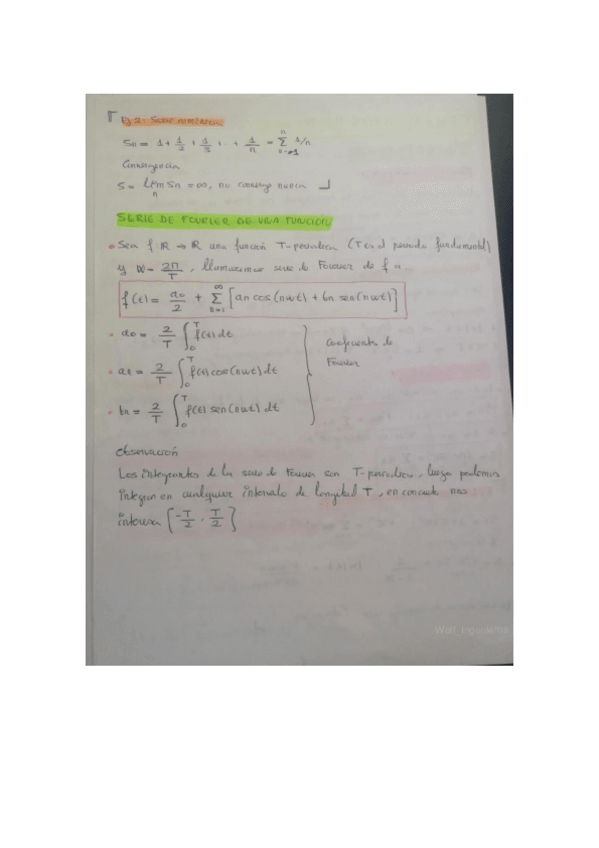 Ej 2: Serie armónica
Sn = 1 + 1/2 + 1/3 + ... + 1/n = Σ_{n=1}^{n} 1/n
Convergencia
S = lim_n Sn = ∞, no converge nunca
SERIE DE FOURIER DE UNA FUNCIÓN
• Sea f: ℝ → ℝ una función T-periódica (T es el periodo fundamental)
y W = 2π/T, llamaremos serie de Fourier de f a
f(t) = a0/2 + Σ_{n=1}^{∞} [an cos(nωt) + bn sen(nωt)]
• a0 = 2/T ∫_0^T f(t) dt
• an = 2/T ∫_0^T f(t) cos(nωt) dt
• bn = 2/T ∫_0^T f(t) sen(nωt) dt
Coeficientes de
Fourier
Observación
Los integrantes de la serie de Fourier son T-periódicos, luego podemos
integrar en cualquier intervalo de longitud T, en concreto nos
interesa [-T/2, T/2]
Wolf_Ingenieros